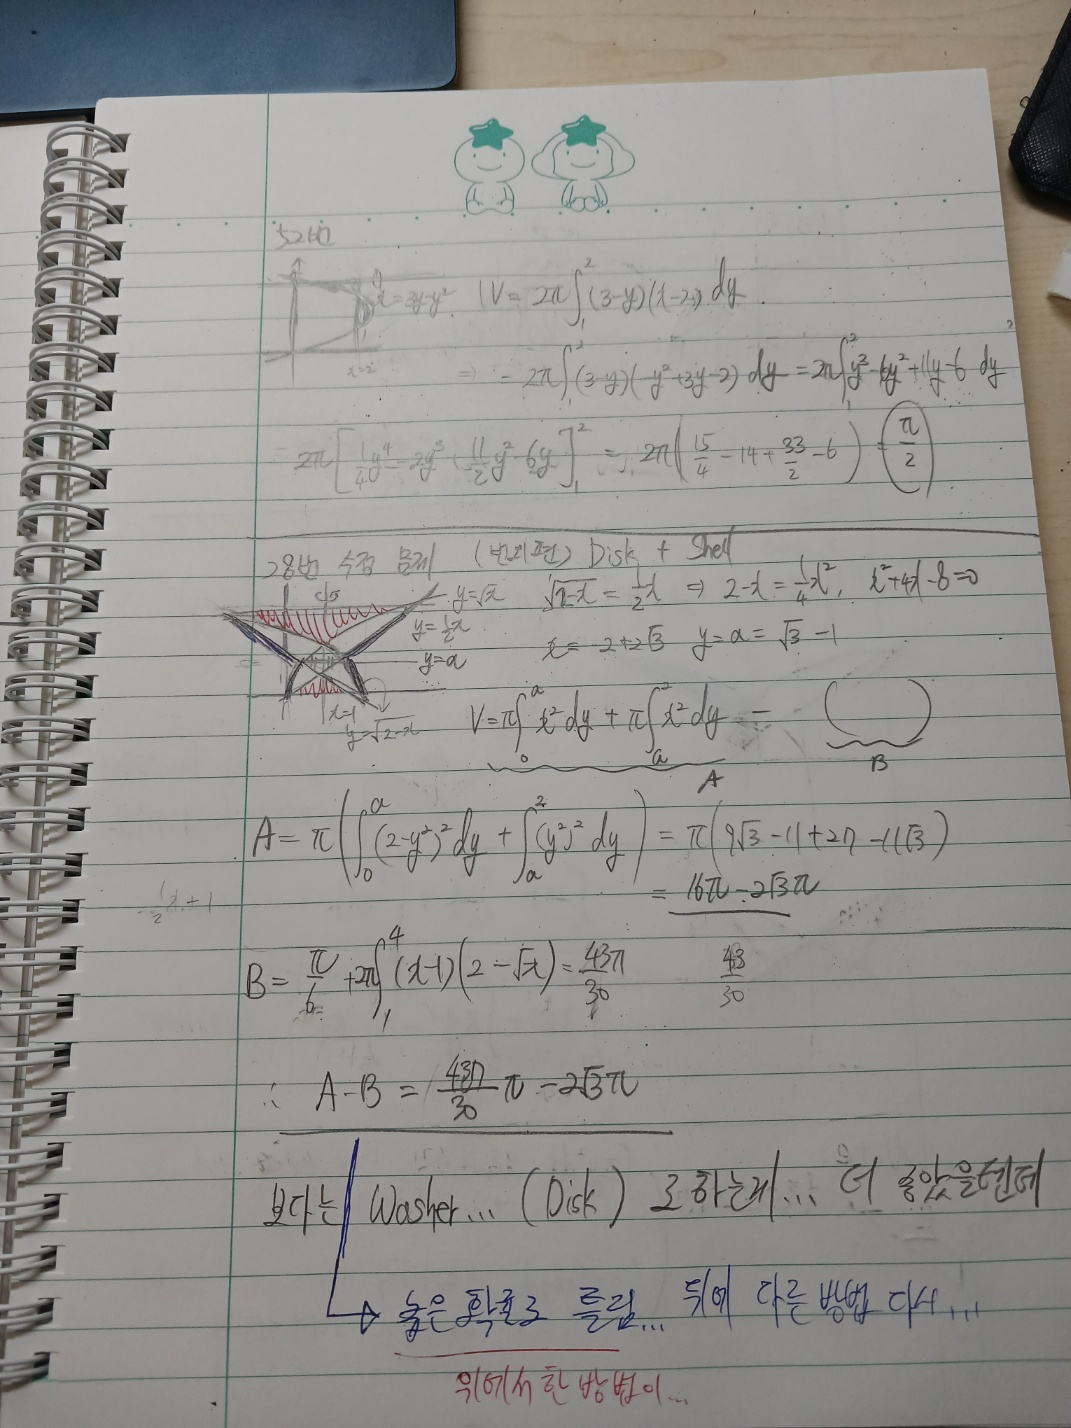 52번
x=3y-y² V = 2π∫₁² (3-y)(x-2) dy
x=2
⇒ = 2π∫₁² (3-y)(-y²+3y-2) dy = 2π∫₁² y³-6y²+11y-6 dy
= 2π[1/4 y⁴ - 2y³ + 11/2 y² - 6y]₁² = 2π(15/4 - 14 + 33/2 - 6) = π/2
28번 수정 문제 (번외편) Disk + Shell
y=√x √2-x = 1/2 x ⇒ 2-x = 1/4 x², x²+4x-8=0
y=1/2 x
y=a x = -2+2√3 y=a=√3-1
x=1
y=√2-x V=π∫₀ᵃ x² dy + π∫ₐ² x² dy - ( )
A B
A = π(∫₀ᵃ (2-y²)² dy + ∫ₐ² (y²)² dy) = π(9√3-11+27-11√3)
= 16π-2√3π
1/2 x+1
B = π/6 + 2π∫₁⁴ (x-1)(2-√x) = 43π/30 43/30
∴ A-B = 437/30 π - 2√3π
보다는 Washer... (Disk) 로 하는게... 더 좋았을텐데
높은 확률로 틀림... 뒤에 다른 방법 다시...
위에서 한 방법이...